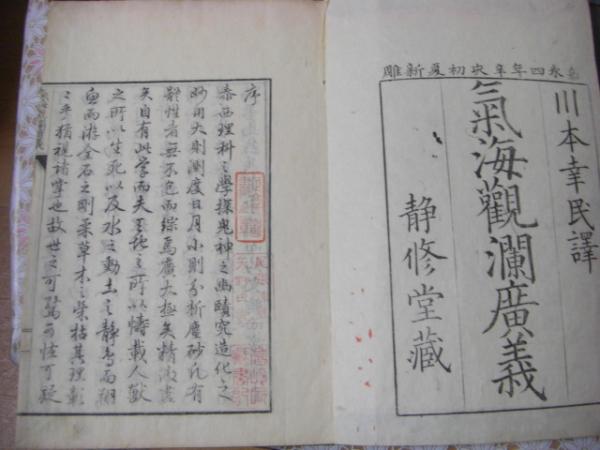 嘉永四年辛亥初夏新雕
川本幸民譯
氣海觀瀾廣義
静修堂藏
序
泰西理科之學探鬼神之幽賾究造化之
妙用大則測度日月小則分析塵砂凡有
形性者無不包而綜焉廣大極矣精微盡
矣自有此学而夫天地之所以幬載人獣
之所以生死以及水之動土之静鳥而翔
魚而游金石之剛柔草木之榮枯其理彰
〻乎猶視諸掌也故世之可驚可怪可疑